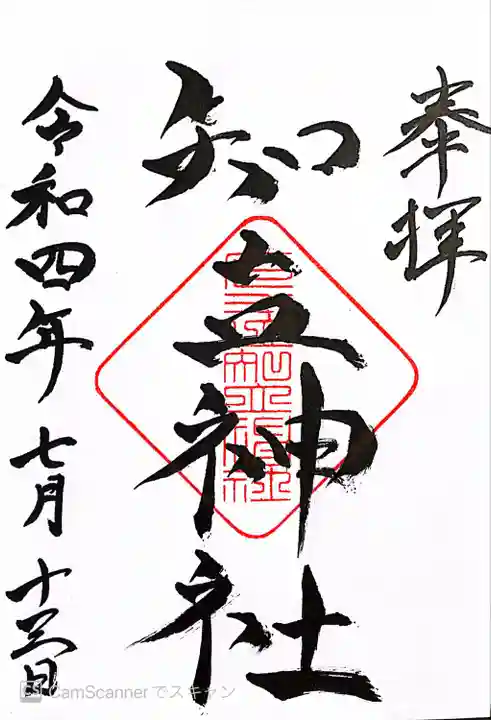 奉拝
知立神社
令和四年七月十三日
CamScanner でスキャン